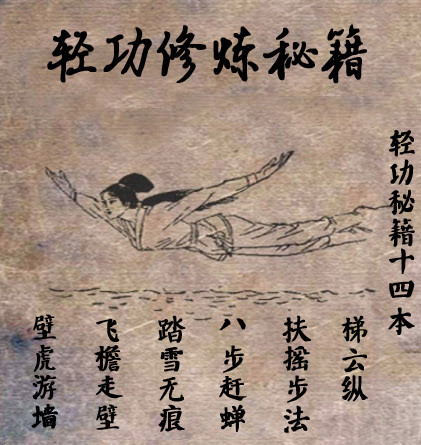 轻功修炼秘籍
轻功秘籍十四本
梯云纵
扶摇步法
八步赶蝉
踏雪无痕
飞檐走壁
壁虎游墙